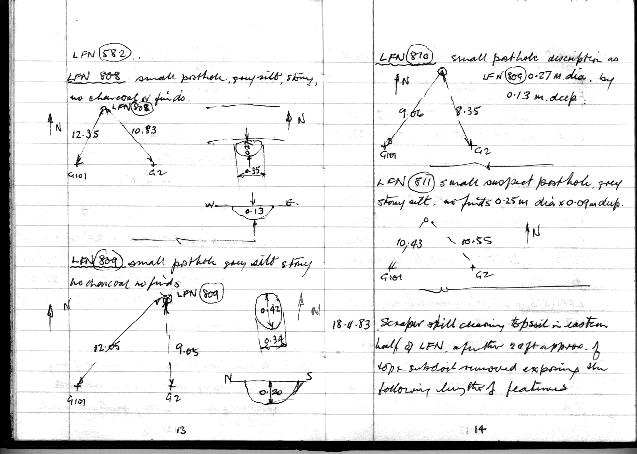 LFN 582.
LFN 808 small posthole, grey silt, stony,
no charcoal or finds
LFN 808
N
12.35
10.83
G101
G2
N
0.35
W
E
0.13
LFN 809 small posthole grey silt stony
no charcoal no finds
LFN 809
N
12.05
9.05
G101
G2
0.42
0.34
N
N
S
0.20
13
LFN 810 small posthole description as
LFN 809 0.27 m. dia. by
0.13 m. deep.
N
9.06
8.35
G101
G2
LFN 811 small suspect posthole, grey
stony silt. no finds 0.25m dia x 0.09m deep.
N
10.43
10.55
G101
G2
18-11-83 Scraper still cleaning topsoil in eastern
half of LFN, a further 20ft approx. of
top & subsoil removed exposing the
following lengths of features
14